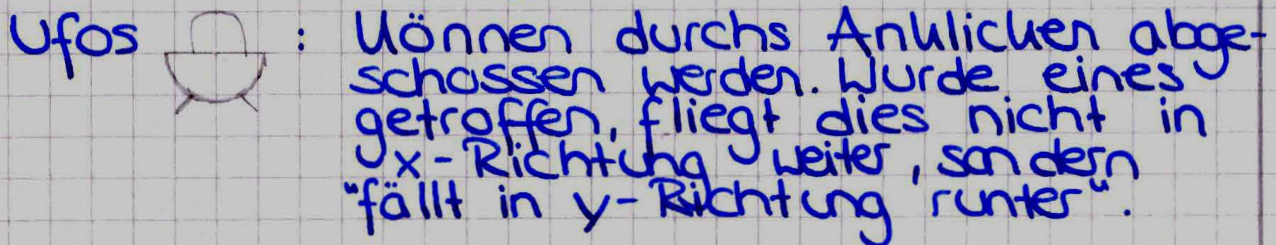 Ufos : Können durchs Anklicken abge-
schossen werden. Wurde eines
getroffen, fliegt dies nicht in
x-Richtung weiter, sondern
"fällt in y-Richtung runter".